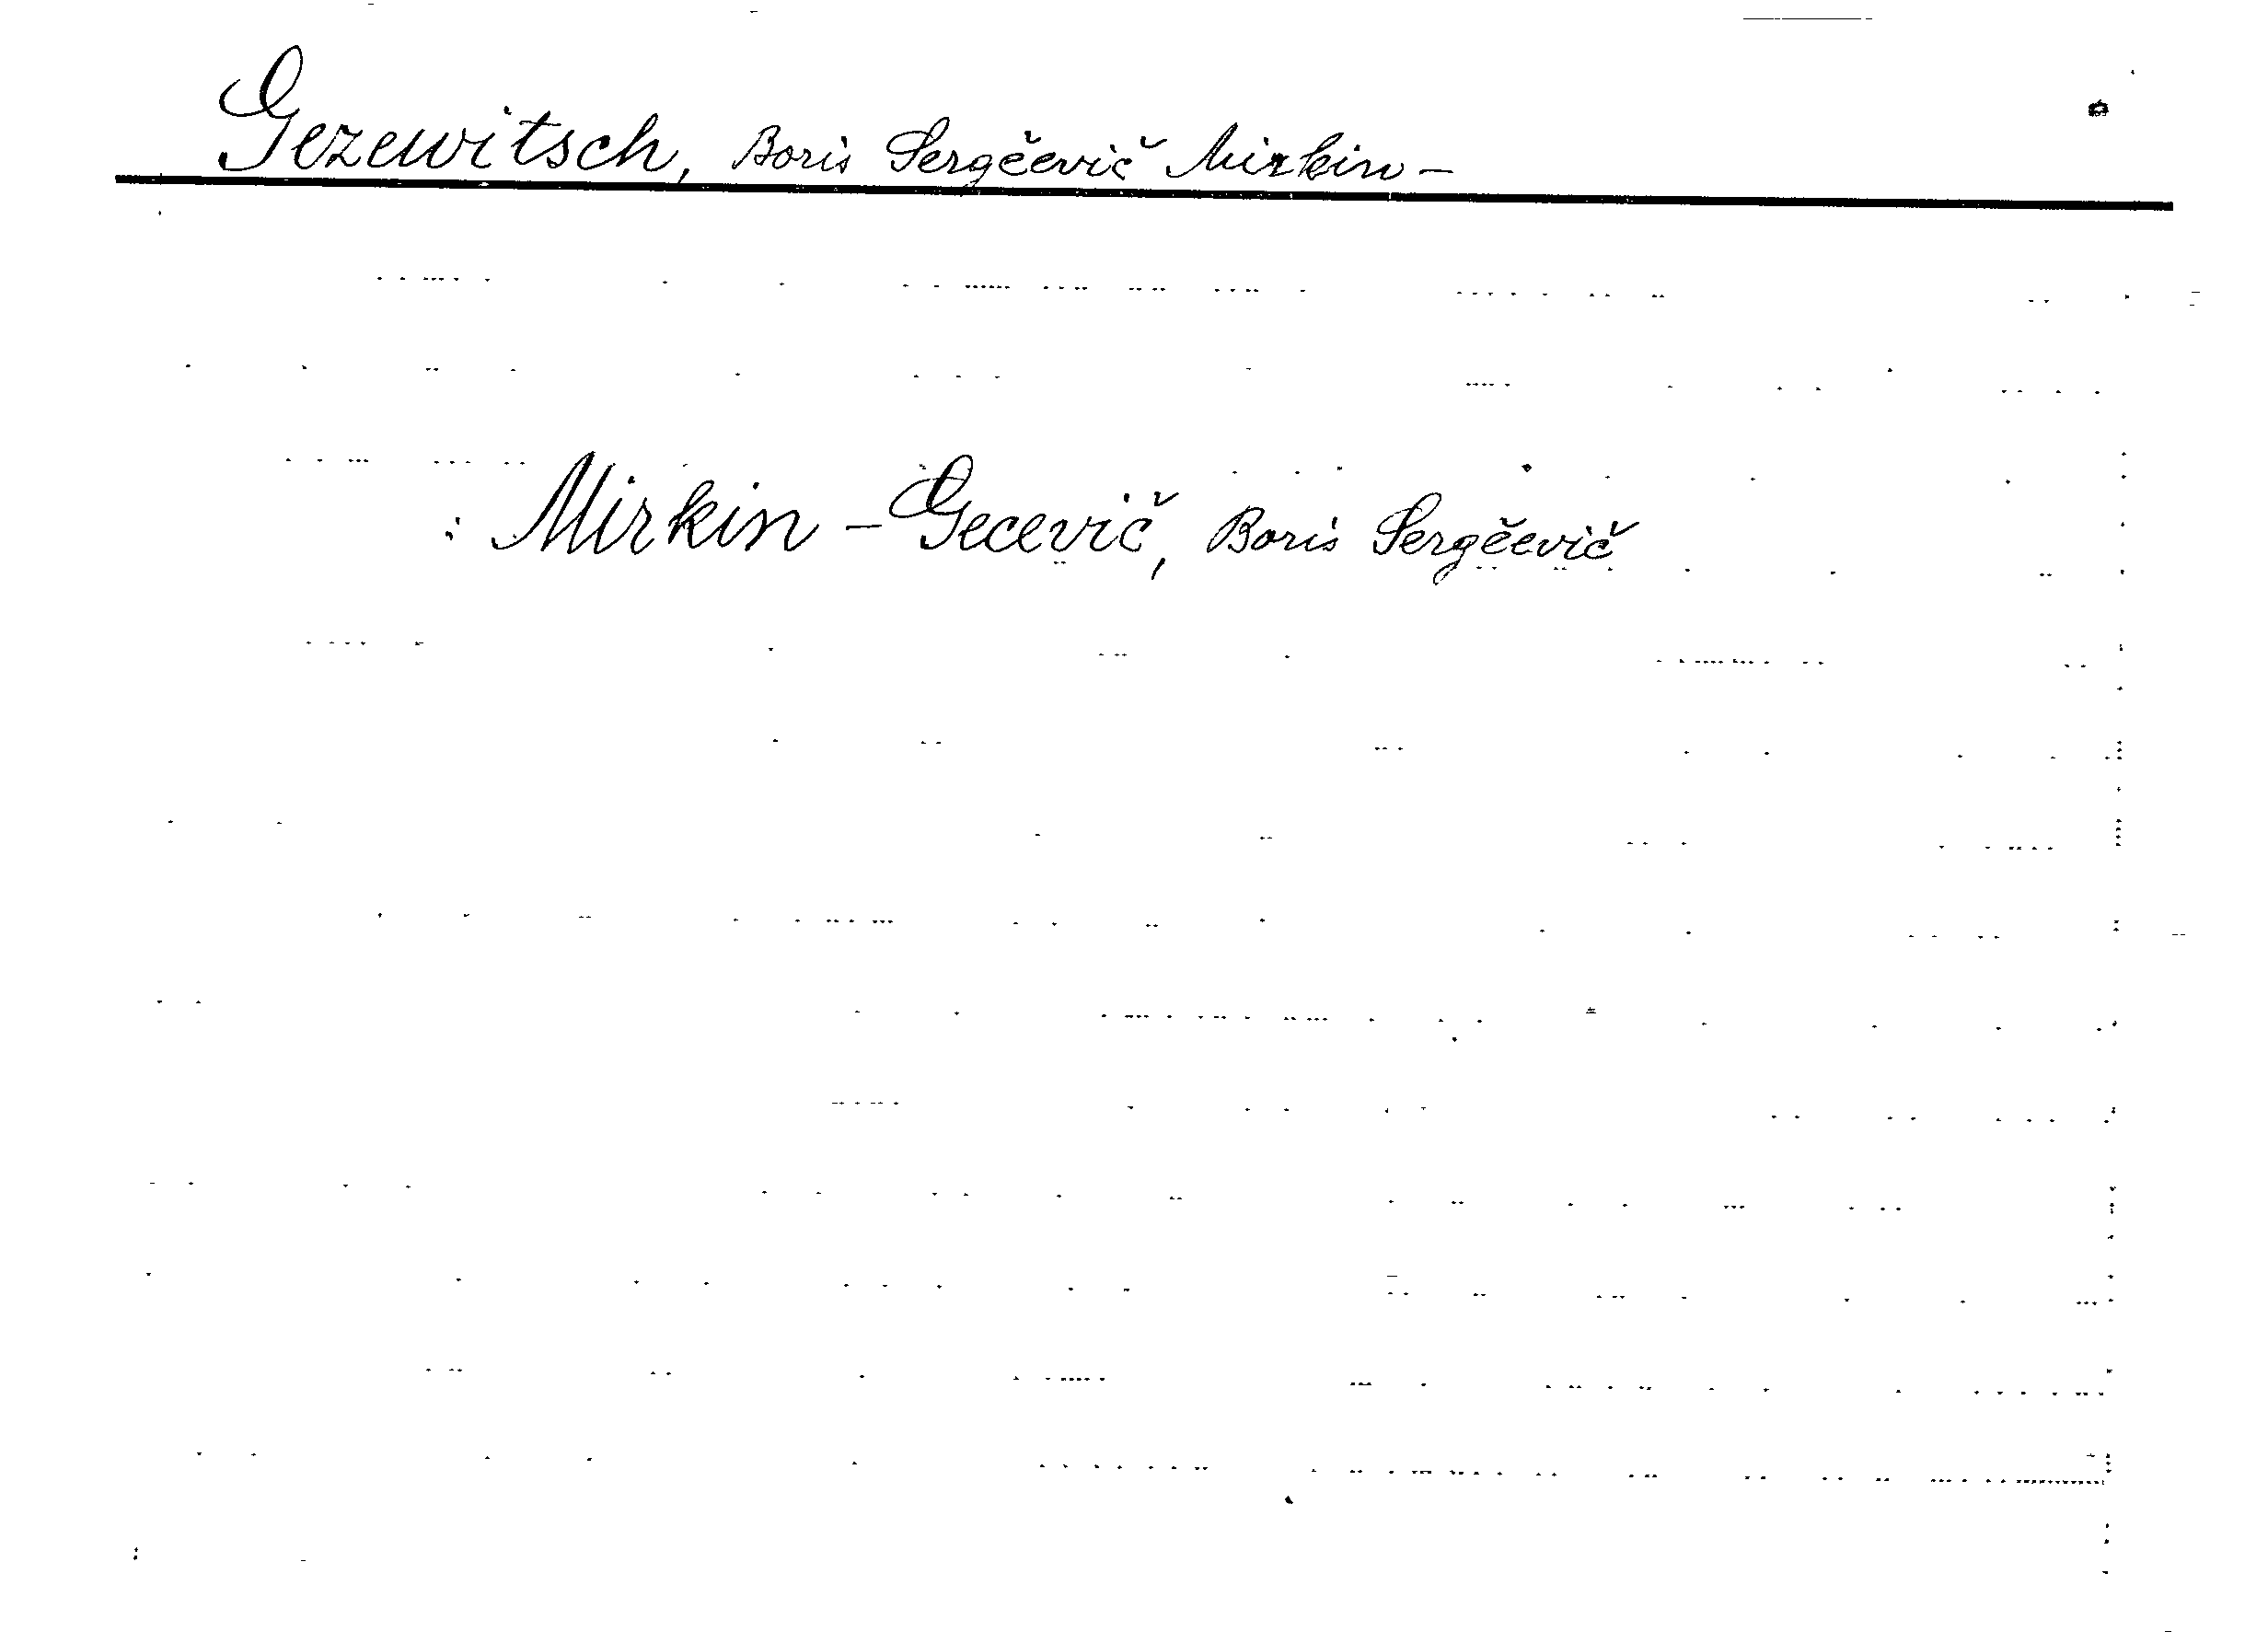 Gezewitsch, Boris Sergěevič Mirkin-
: Mirkin-Gecevič, Boris Sergěevič